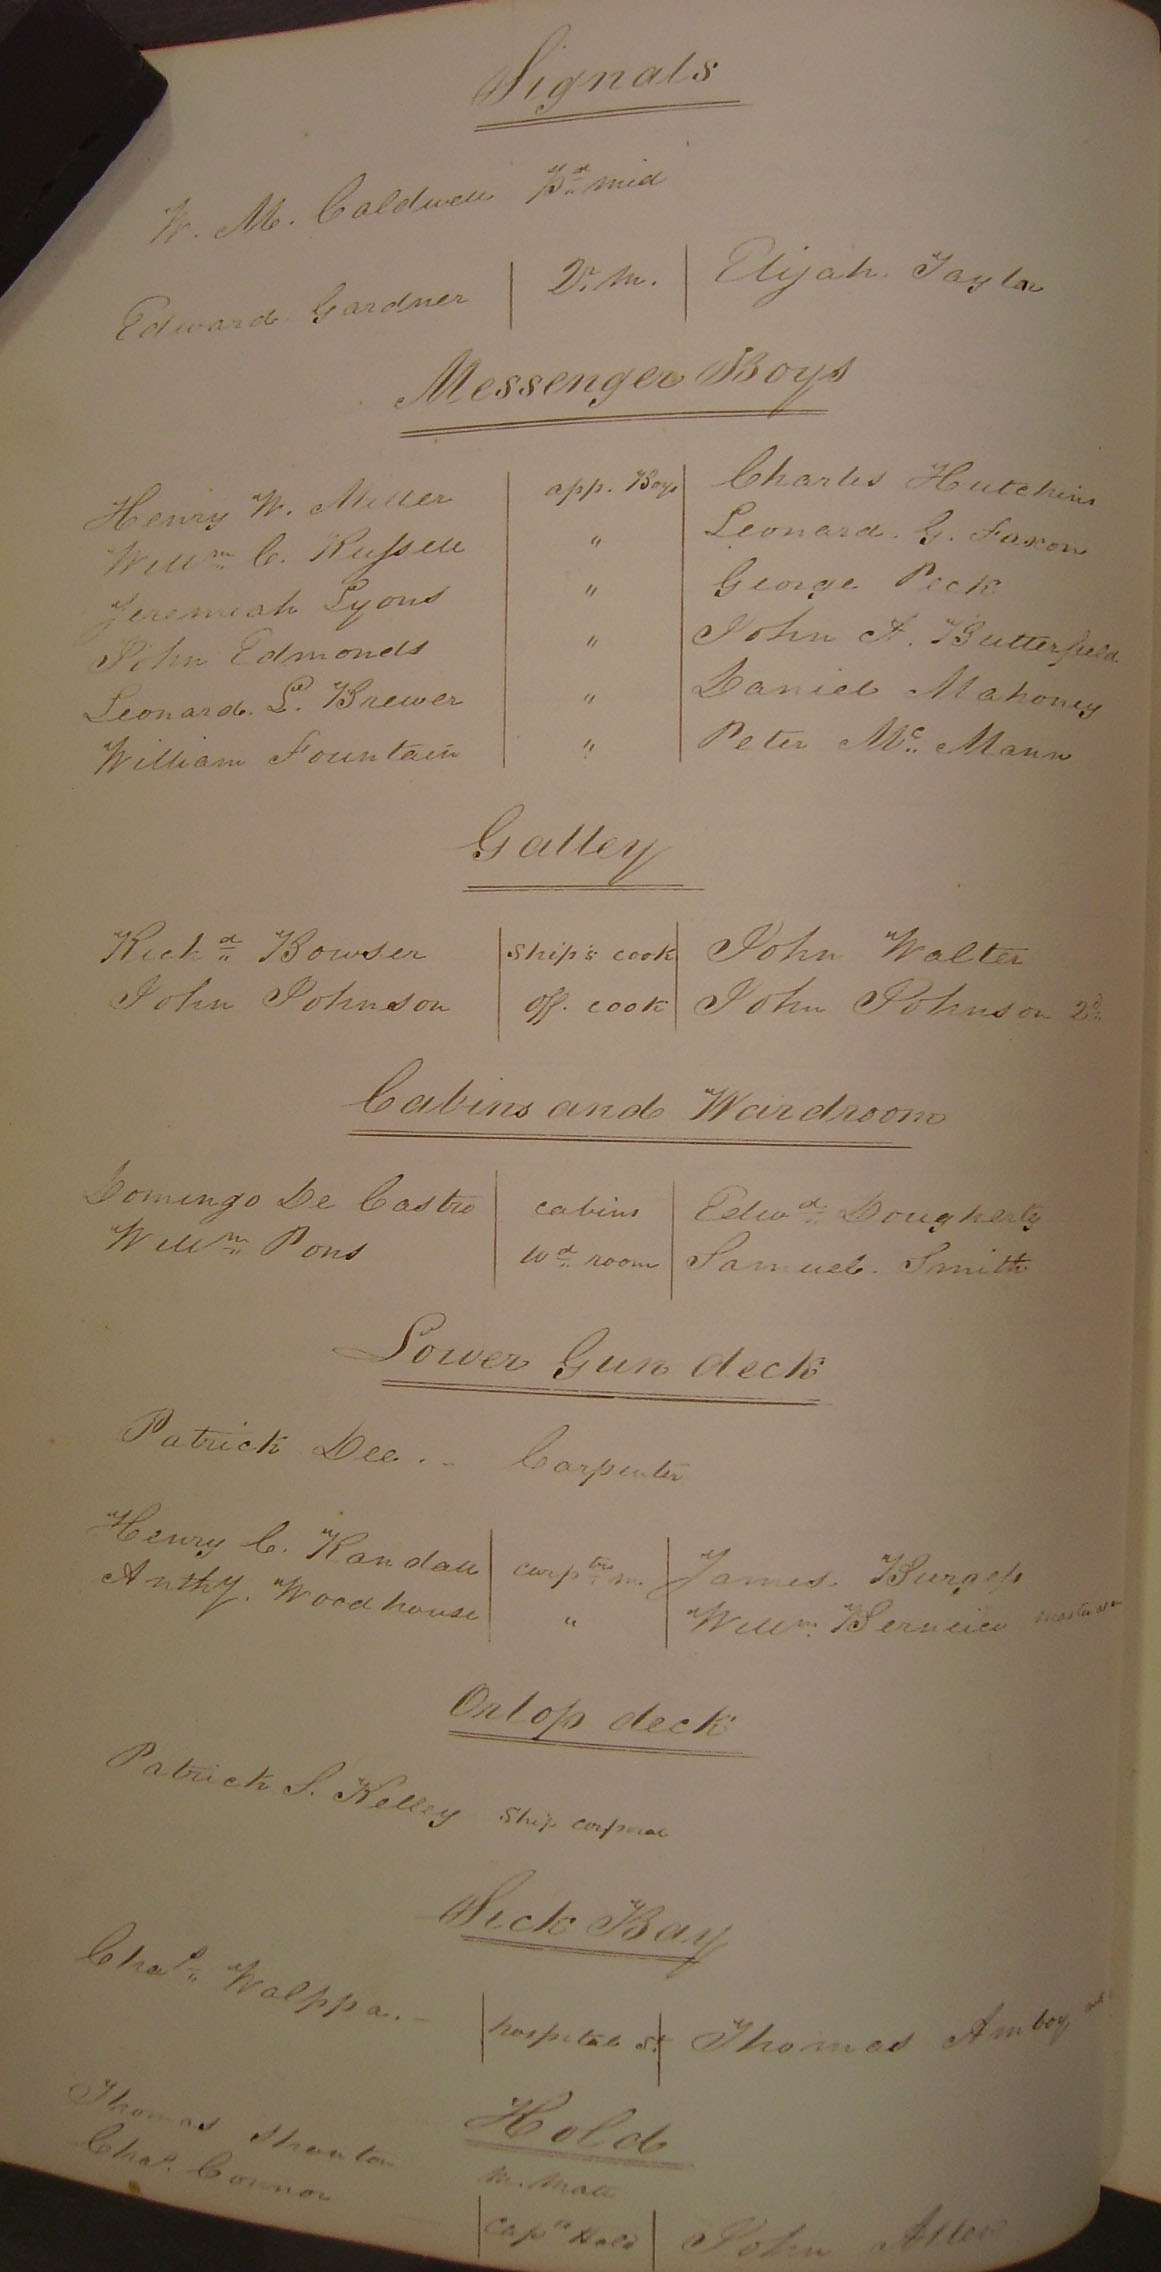 Signals
W. M. Caldwell pd mid
Edward Gardner Qr. M. Elijah Taylor
Messenger Boys
Henry W. Miller app. Boys Charles Hutchins
Willm C. Russell " Leonard G. Faxon
Jeremiah Lyons " George Peck
John Edmonds " John A. Butterfield
Leonard L. Brewer " Daniel Mahoney
William Fountain " Peter Mc Mann
Galley
Richd Bowser Ship's cook John Walter
John Johnson Off. cook John Johnson 2d
Cabins and Wardroom
Domingo De Castro cabins Edwd Dougherty
Willm Pons Wd room Samuel Smith
Lower Gun deck
Patrick Dee Carpenter
Henry C. Randall carptrs m. James Burgess
Anthy. Woodhouse " Willm
Orlop deck
Patrick S. Kelley Ship corporal
Sick Bay
Chas Walppa. hospital St Thomas Amboy
Hold
Thomas m. mate
Chas. Connor Capn Hold John Allen